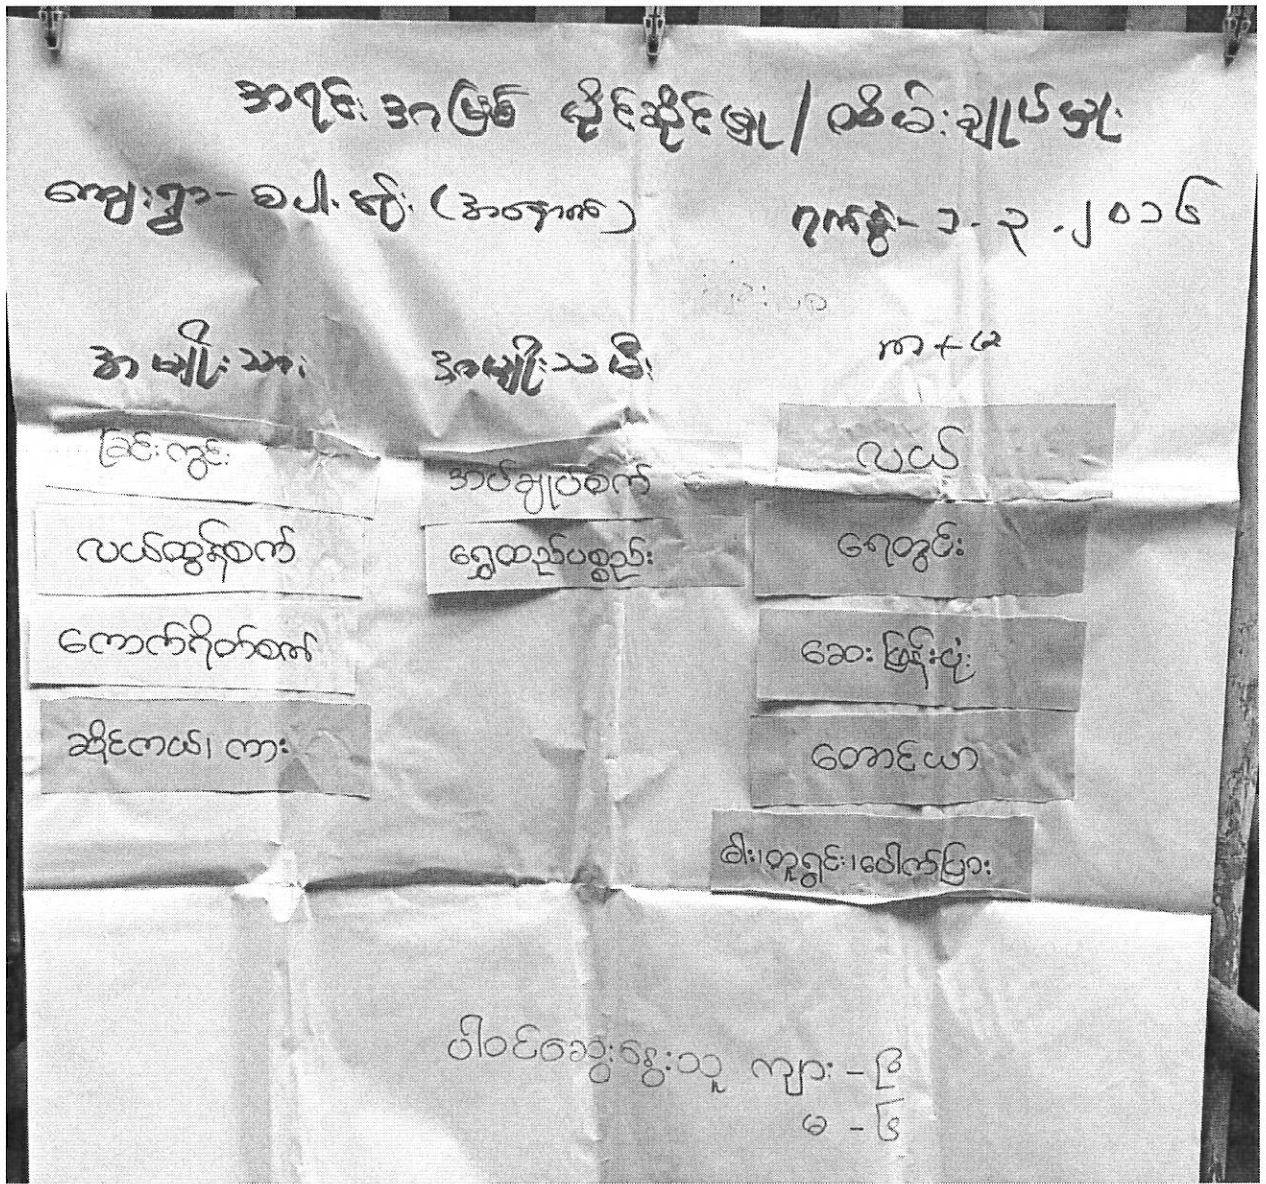 အရင်းအမြစ် ပိုင်ဆိုင်မှု / ထိမ်းချုပ်မှု
ကျေးရွာ - စပါး (အနောက်)
ရက်စွဲ - ၁ - ၃ - ၂၀၁၆
အမျိုးသား
အမျိုးသမီး
ကျာ + မ
ခြင်းကွင်း
လယ်ထွန်စက်
ကောက်ရိတ်စက်
ဆိုင်ကယ်၊ ကား
အပ်ချုပ်စက်
ရွှေထည်ပစ္စည်း
လယ်
ရေတွင်း
ဆေးဖြန်းပုံး
တောင်ယာ
ဓါး၊ တူရွင်း၊ ပေါက်ပြား
ပါဝင်ဆွေးနွေးသူ ကျား - ၆
မ - ၆